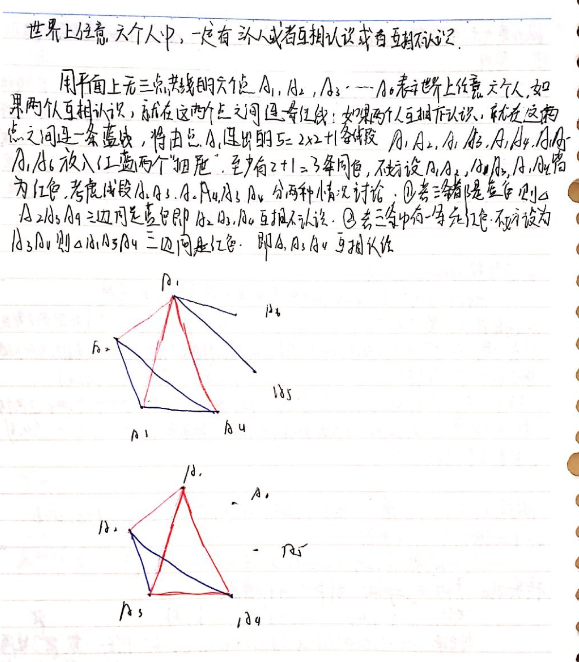 世界上任意六个人中，一定有三个人或者互相认识或者互相不认识.
用平面上无三点共线的六个点 A₁, A₂, A₃ …… A₆表示世界上任意六个人,如
果两个人互相认识，就在这两个点之间连一条红线；如果两个人互相不认识，就在这两
点之间连一条蓝线，将由点A₁连出的5=2×2+1条线段 A₁A₂, A₁A₃, A₁A₄, A₁A₅
A₁A₆ 放入红蓝两个"抽屉"，至少有2+1=3条同色，不妨设A₁A₂, A₁A₃, A₁A₄皆
为红色，考虑线段A₂A₃, A₂A₄, A₃A₄ 分两种情况讨论，①若三条都是蓝色，则△
A₂A₃A₄三边同是蓝色即A₂A₃A₄互相不认识. ②若三条中有一条是红色.不妨设为
A₃A₄则△A₁A₃A₄三边同是红色. 即A₁A₃A₄互相认识
A₁
A₆
A₂
A₅
A₃
A₄
A₁
A₆
A₂
A₅
A₃
A₄